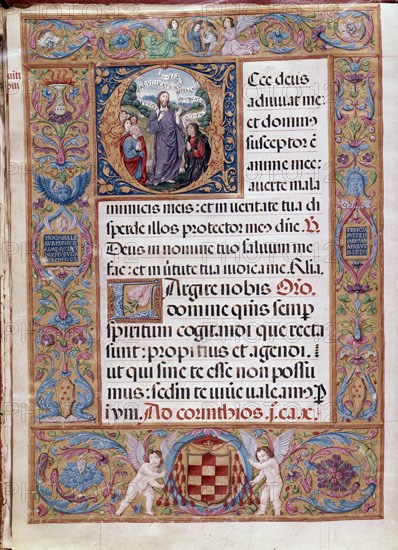 ECce deus
adiuuat me:
et domin
susceptor ē
anime mee:
auerte mala
inimicis meis: et in ueritate tua di
sperde illos protector meꝰ dñe. ℣
Deus in nomine tuo saluum me
fac: et in uirtute tua iudica me. Glīa
Largire nobis Oro.
domine q̄is semp
spiritum cogitandi que recta
sunt: propitius et agendi.
ut qui sine te esse non possu
mus: scdm te uiuere ualeam
Ad corinthios .j. ca. x.